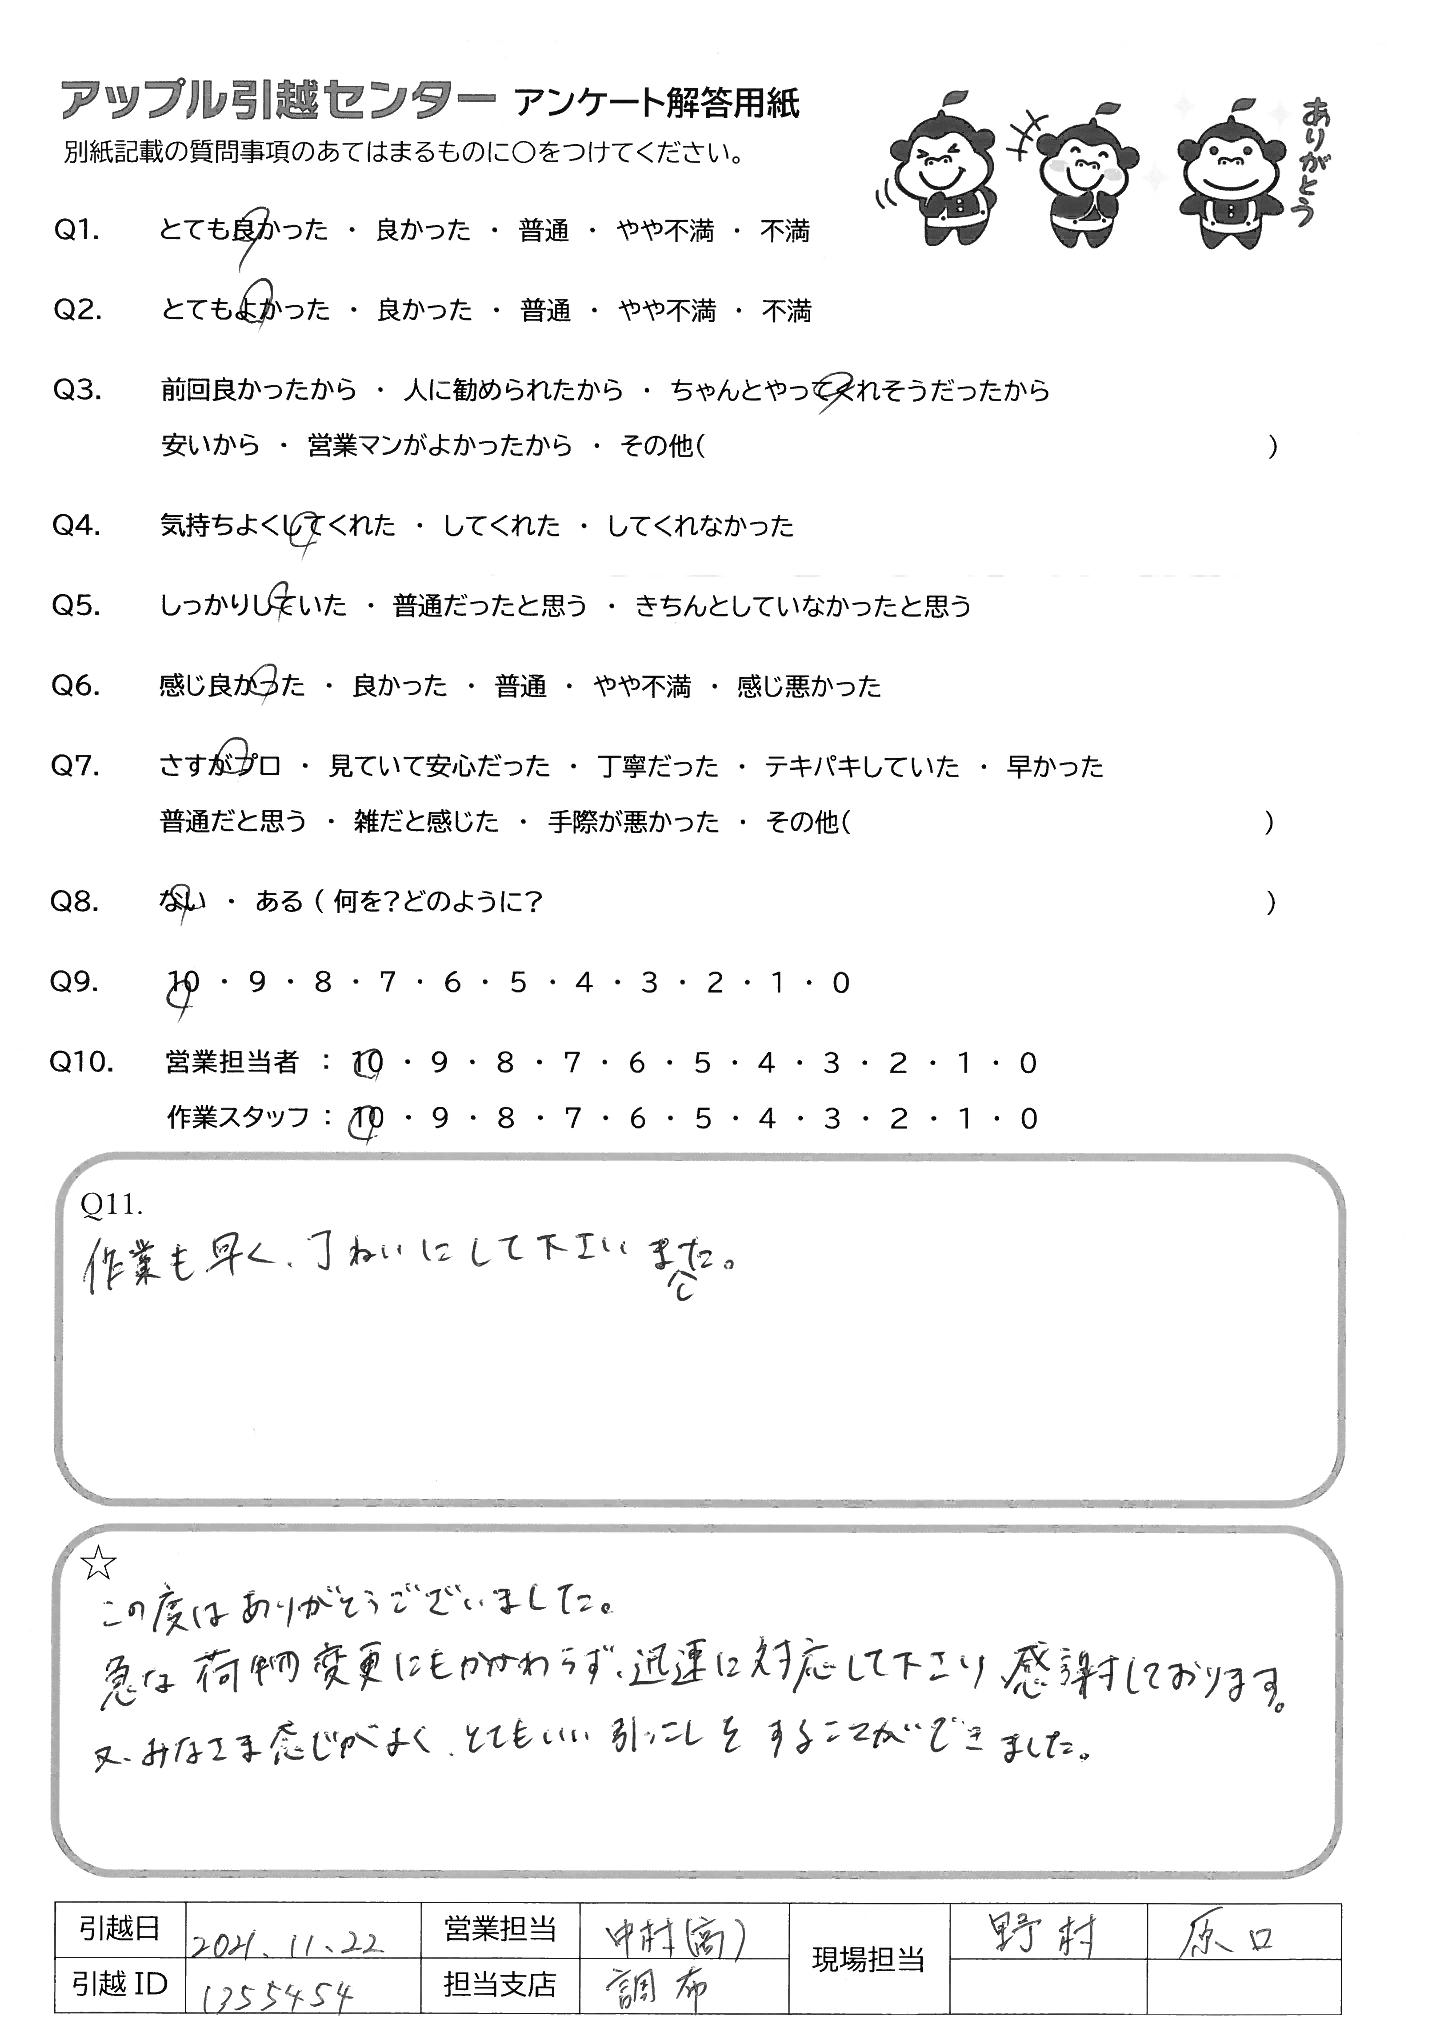 アップル引越センター アンケート解答用紙
別紙記載の質問事項のあてはまるものに〇をつけてください。
ありがとう
Q1. とても良かった ・ 良かった ・ 普通 ・ やや不満 ・ 不満
Q2. とてもよかった ・ 良かった ・ 普通 ・ やや不満 ・ 不満
Q3. 前回良かったから ・ 人に勧められたから ・ ちゃんとやってくれそうだったから
安いから ・ 営業マンがよかったから ・ その他( )
Q4. 気持ちよくしてくれた ・ してくれた ・ してくれなかった
Q5. しっかりしていた ・ 普通だったと思う ・ きちんとしていなかったと思う
Q6. 感じ良かった ・ 良かった ・ 普通 ・ やや不満 ・ 感じ悪かった
Q7. さすがプロ ・ 見ていて安心だった ・ 丁寧だった ・ テキパキしていた ・ 早かった
普通だと思う ・ 雑だと感じた ・ 手際が悪かった ・ その他( )
Q8. ない ・ ある ( 何を?どのように? )
Q9. 10 ・ 9 ・ 8 ・ 7 ・ 6 ・ 5 ・ 4 ・ 3 ・ 2 ・ 1 ・ 0
Q10. 営業担当者 : 10 ・ 9 ・ 8 ・ 7 ・ 6 ・ 5 ・ 4 ・ 3 ・ 2 ・ 1 ・ 0
作業スタッフ : 10 ・ 9 ・ 8 ・ 7 ・ 6 ・ 5 ・ 4 ・ 3 ・ 2 ・ 1 ・ 0
Q11.
作業も早く、丁ねいにして下さいました。
☆
この度はありがとうございました。
急な荷物変更にもかかわらず、迅速に対応して下さり、感謝しております。
又、みなさま感じがよく、とてもいい引っこしをすることができました。
引越日 2021.11.22 営業担当 中村(高) 現場担当 野村 原口
引越ID 1355454 担当支店 調布